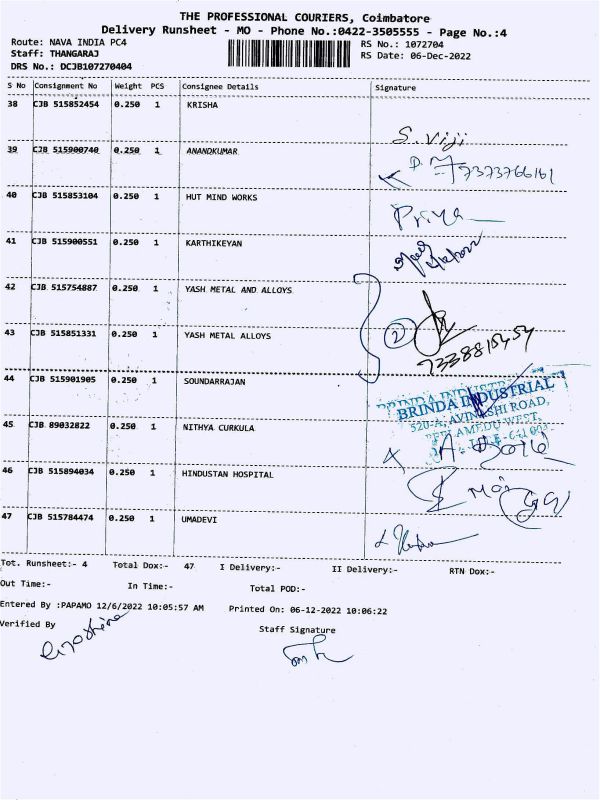 THE PROFESSIONAL COURIERS, Coimbatore
Delivery Runsheet - MO - Phone No.:0422-3505555 - Page No.:4
Route: NAVA INDIA PC4 RS No.: 1072704
Staff: THANGARAJ RS Date: 06-Dec-2022
DRS No.: DCJB107270404
S No Consignment No Weight PCS Consignee Details Signature
38 CJB 515852454 0.250 1 KRISHA
S. Viji
39 CJB 515900740 0.250 1 ANANDKUMAR
7373766161
40 CJB 515853104 0.250 1 HUT MIND WORKS
Priya
41 CJB 515900551 0.250 1 KARTHIKEYAN
42 CJB 515754887 0.250 1 YASH METAL AND ALLOYS
2
43 CJB 515851331 0.250 1 YASH METAL ALLOYS
7338815454
44 CJB 515901905 0.250 1 SOUNDARRAJAN
BRINDA INDUSTRIAL
520-A, AVINASHI ROAD,
45 CJB 89032822 0.250 1 NITHYA CURKULA
46 CJB 515894034 0.250 1 HINDUSTAN HOSPITAL
47 CJB 515784474 0.250 1 UMADEVI
Tot. Runsheet:- 4 Total Dox:- 47 I Delivery:- II Delivery:- RTN Dox:-
Out Time:- In Time:- Total POD:-
Entered By :PAPAMO 12/6/2022 10:05:57 AM Printed On: 06-12-2022 10:06:22
Verified By Staff Signature